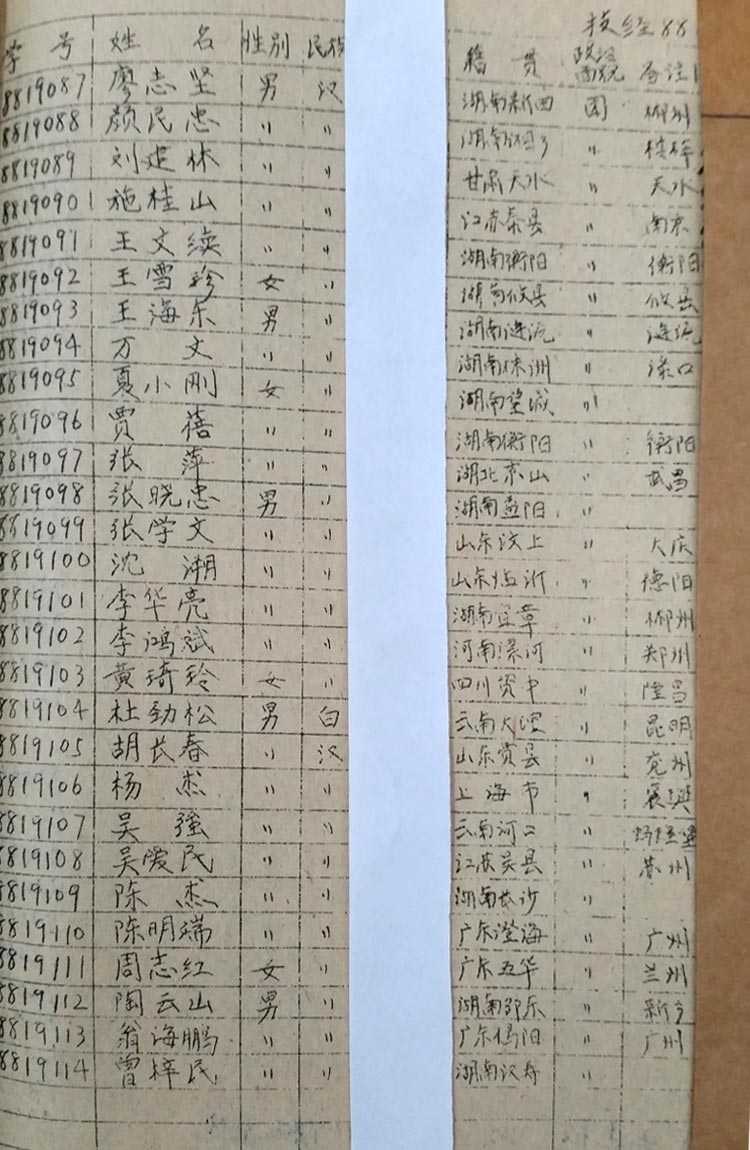 技经88
学号 姓名 性别 民族 籍贯 政治面貌 备注
8819087 廖志坚 男 汉 湖南新田 团 郴州
8819088 颜民忠 〃 〃 湖南 〃
8819089 刘建林 〃 〃 甘肃天水 〃 天水
8819090 施桂山 〃 〃 江苏泰县 〃 南京
8819091 王文续 〃 〃 湖南衡阳 〃 衡阳
8819092 王雪珍 女 〃 湖南攸县 〃 攸县
8819093 王海东 男 〃 湖南涟沅 〃 涟沅
8819094 万文 〃 〃 湖南株洲 〃 渌口
8819095 夏小刚 女 〃 湖南望城 〃
8819096 贾蓓 〃 〃 湖南衡阳 〃 衡阳
8819097 张萍 〃 〃 湖北京山 〃 武昌
8819098 张晓忠 男 〃 湖南益阳 〃
8819099 张学文 〃 〃 山东汶上 〃 大庆
8819100 沈湖 〃 〃 山东临沂 〃 德阳
8819101 李华亮 〃 〃 湖南宜章 〃 郴州
8819102 李鸿斌 〃 〃 河南漯河 〃 郑州
8819103 黄琦玲 女 〃 四川资中 〃 隆昌
8819104 杜劲松 男 白 云南大理 〃 昆明
8819105 胡长春 〃 汉 山东费县 〃 兖州
8819106 杨杰 〃 〃 上海市 〃 襄樊
8819107 吴强 〃 〃 云南河口 〃
8819108 吴爱民 〃 〃 江苏吴县 〃 苏州
8819109 陈杰 〃 〃 湖南长沙 〃
8819110 陈明瑞 〃 〃 广东澄海 〃 广州
8819111 周志红 女 〃 广东五华 〃 兰州
8819112 陶云山 男 〃 湖南邵东 〃 新乡
8819113 翁海鹏 〃 〃 广东揭阳 〃 广州
8819114 曾梓民 〃 〃 湖南汉寿 〃